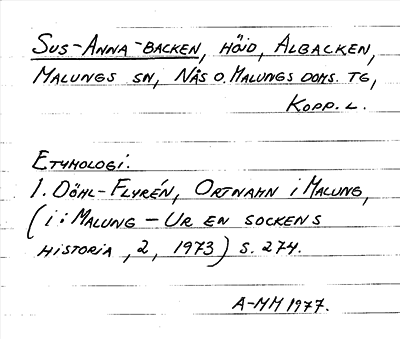 Sus-Anna-backen, höjd, Albacken,
Malungs sn, Nås o. Malungs doms. tg,
Kopp. l.
Etymologi.
1. Döhl-Flyrén, Ortnamn i Malung,
(i: Malung - Ur en sockens
historia, 2, 1973) s. 274.
A-MM 1977.